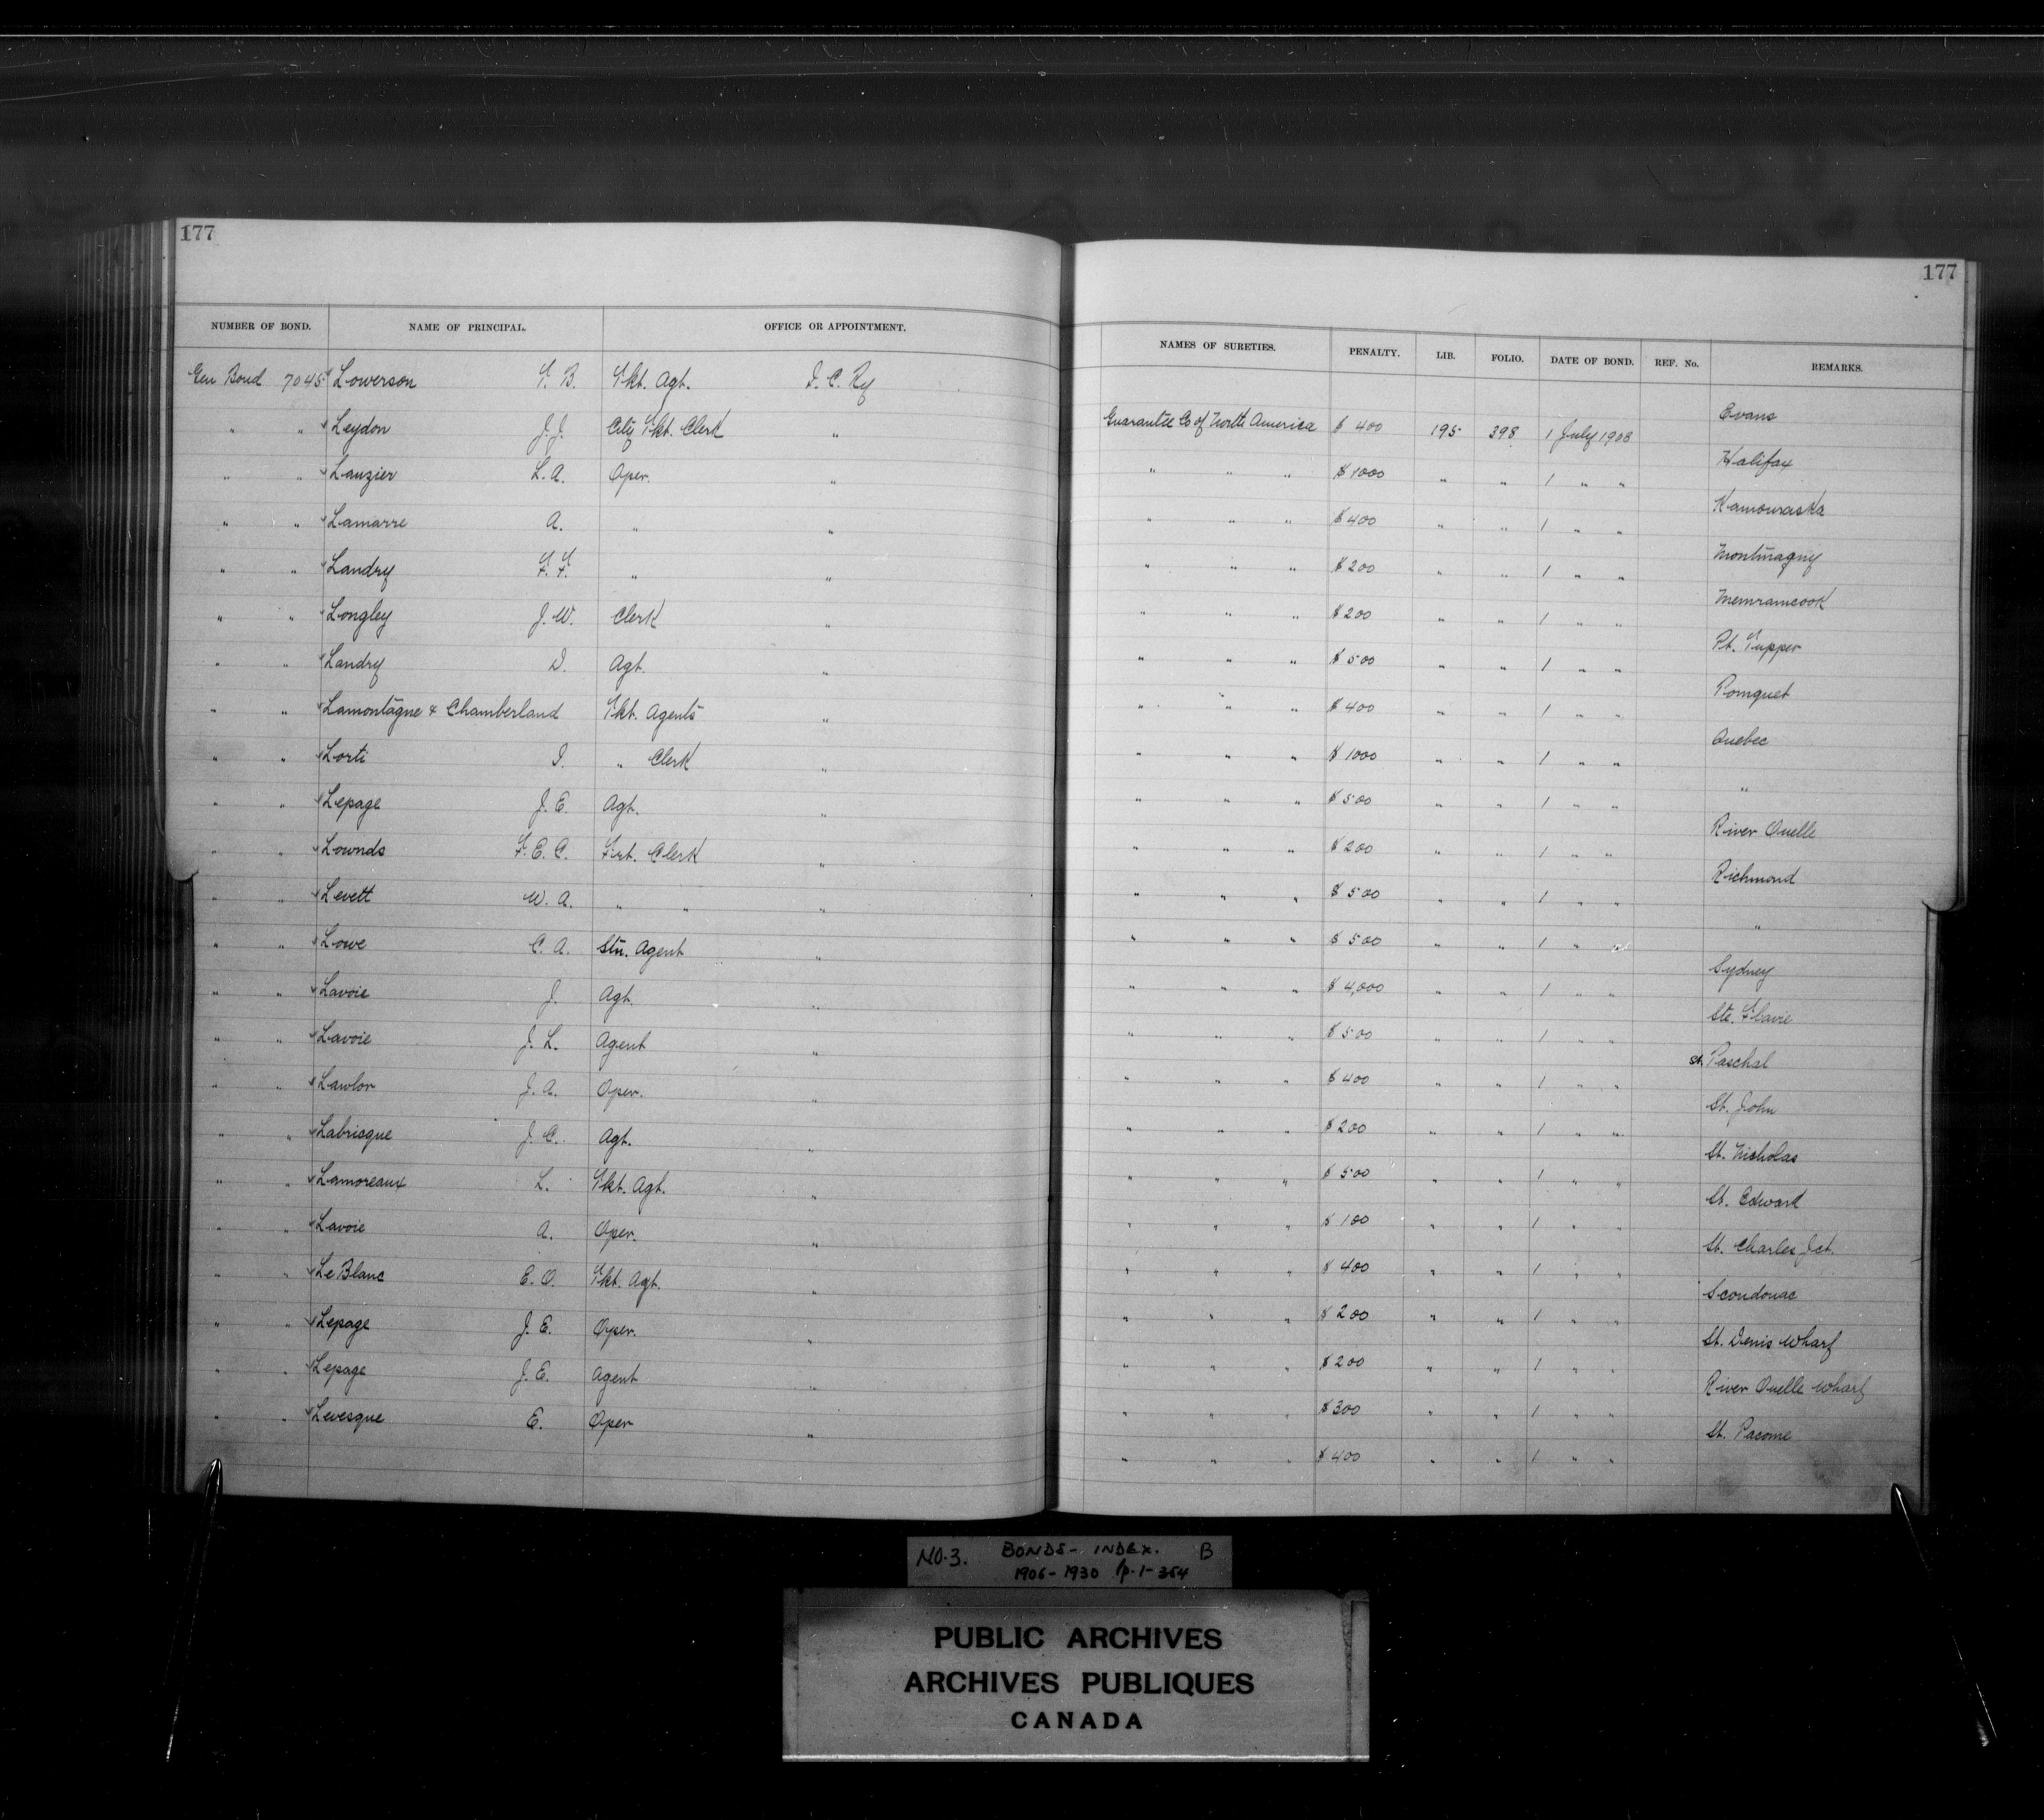 177 177
NUMBER OF BOND. NAME OF PRINCIPAL. OFFICE OR APPOINTMENT. NAMES OF SURETIES. PENALTY. LIB. FOLIO. DATE OF BOND. REF. No. REMARKS.
Gen Bond 7045 Lowerson T. B. Tkt. Agt. I. C. Ry Guarantee Co of North America $ 400 195 398 1 July 1908 Evans
" " Leydon J. J. City Tkt. Clerk " " " " $ 1000 " " 1 " " Halifax
" " Lauzier L. A. Oper. " " " " $ 400 " " 1 " " Kamouraska
" " Lamarre A. " " " " " $ 200 " " 1 " " Montmagny
" " Landry F. F. " " " " " $ 200 " " 1 " " Memramcook
" " Longley J. W. Clerk " " " " $ 500 " " 1 " " Pt. Tupper
" " Landry D. Agt. " " " " $ 400 " " 1 " " Pomquet
" " Lamontagne & Chamberland Tkt. Agents " " " " $ 1000 " " 1 " " Quebec
" " Lorti I. " Clerk " " " " $ 500 " " 1 " " "
" " Lepage J. E. Agt. " " " " $ 200 " " 1 " " River Ouelle
" " Lownds F. E. C. Frt. Clerk " " " " $ 500 " " 1 " " Richmond
" " Levett W. A. " " " " " " $ 500 " " 1 " " "
" " Lowe C. A. Stn. Agent " " " " $ 4,000 " " 1 " " Sydney
" " Lavoie J. Agt. " " " " $ 500 " " 1 " " Ste. Flavie
" " Lavoie J. L. Agent " " " " $ 400 " " 1 " " St. Paschal
" " Lawlor J. A. Oper. " " " " $ 200 " " 1 " " St. John
" " Labrisque J. C. Agt. " " " " $ 500 " " 1 " " St. Nicholas
" " Lamoreaux L. Tkt. Agt. " " " " $ 100 " " 1 " " St. Edward
" " Lavoie A. Oper. " " " " $ 400 " " 1 " " St. Charles Jct.
" " Le Blanc E. O. Tkt. Agt. " " " " $ 200 " " 1 " " Scoudouac
" " Lepage J. E. Oper. " " " " $ 200 " " 1 " " St. Denis Wharf
" " Lepage J. E. Agent " " " " $ 300 " " 1 " " River Ouelle Wharf
" " Levesque E. Oper " " " " $ 400 " " 1 " " St. Pacome
NO. 3. BONDS - INDEX. B
1906 - 1930 p. 1 - 354
PUBLIC ARCHIVES
ARCHIVES PUBLIQUES
CANADA